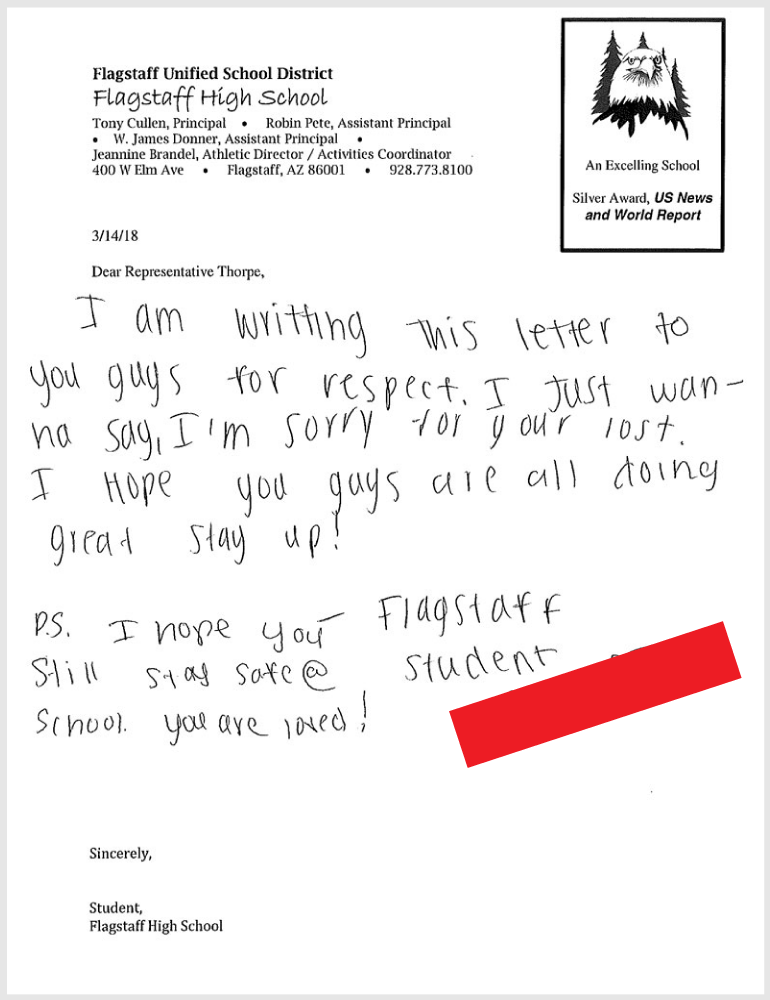 Flagstaff Unified School District
Flagstaff High School
Tony Cullen, Principal • Robin Pete, Assistant Principal
• W. James Donner, Assistant Principal •
Jeannine Brandel, Athletic Director / Activities Coordinator
400 W Elm Ave • Flagstaff, AZ 86001 • 928.773.8100
An Excelling School
Silver Award, US News
and World Report
3/14/18
Dear Representative Thorpe,
I am writting this letter to
you guys for respect. I Just wan-
na say, I'm sorry for your lost.
I Hope you guys are all doing
great stay up!
P.S. I hope you
Still stay safe @
School. you are loved!
Flagstaff
student
Sincerely,
Student,
Flagstaff High School